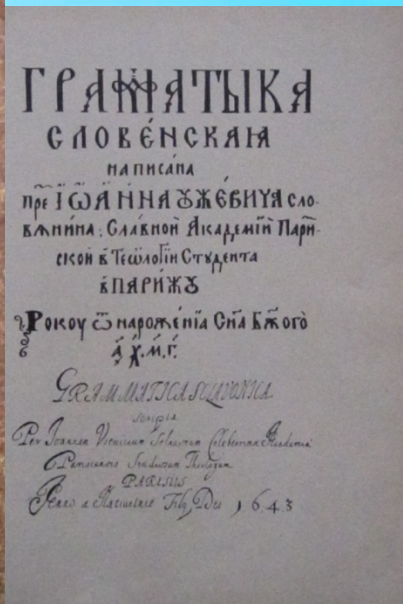 ГРАММАТЫКА
СЛОВЕ́НСКАꙖ
НАПИСА́НА
Пре́ ІѠА́ННА ꙊЖЕ́ВИЧѦ сло-
вѧни́на: Сла́вной Академі́й Пари́-
ской в̾ Теѡло́гїи Студента
в̾ ПАРИ́ЖꙊ
Рокоу ѿ нароже́нїѧ Сн҃а Бж҃ого
҂а҃.х҃.м҃.г҃.
GRAMMATICA SLAVONICA
scripta
Per Ioannem Sclavum Celeberrimæ Academiæ
Parisiensis Theologum
PARISIIS
Filij Dei 1643